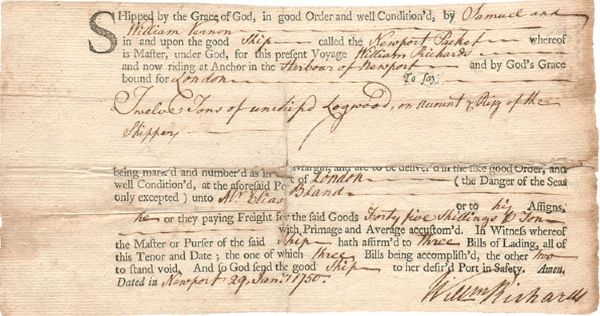 SHipped by the Grace of God, in good Order and well Condition'd, by Samuel and
William Vernon
in and upon the good Ship called the Newport Packet whereof
is Master, under God, for this present Voyage William Richards
and now riding at Anchor in the Harbour of Newport and by God's Grace
bound for London To say
Twelve Tons of unchip'd Logwood, on account & Risq of the
Shippers
being mark'd and number'd as in Margin, and are to be deliver'd in the like good Order, and
well Condition'd, at the aforesaid Po of London (the Danger of the Seas
only excepted) unto Mr. Elias Bland
or to his Assigns,
he or they paying Freight for the said Goods Forty five Shillings P Ton
with Primage and Average accustom'd. In Witness whereof
the Master or Purser of the said Ship hath affirm'd to three Bills of Lading, all of
this Tenor and Date; the one of which three Bills being accomplish'd, the other two
to stand void. And so God send the good Ship to her desir'd Port in Safety. Amen.
Dated in Newport 29 1750.
Willm Richards